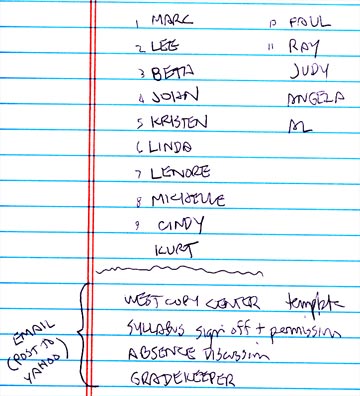 1 MARC
2 LEE
3 BETH
4 JOHN
5 KRISTEN
6 LINDA
7 LENORE
8 MICHELLE
9 CINDY
KURT
10 PAUL
11 RAY
JUDY
ANGELA
AL
EMAIL
(POST TO
YAHOO)
WEST COPY CENTER template
SYLLABUS sign off + permission
ABSENCE DISCUSSION
GRADEKEEPER